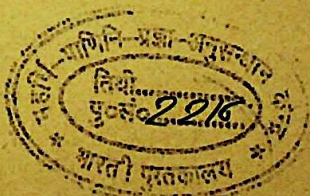 महर्षि-पाणिनि-प्रज्ञा-अनुसन्धान
तिथी..............
पु०सं० 2216
* भारती पुस्तकालय *